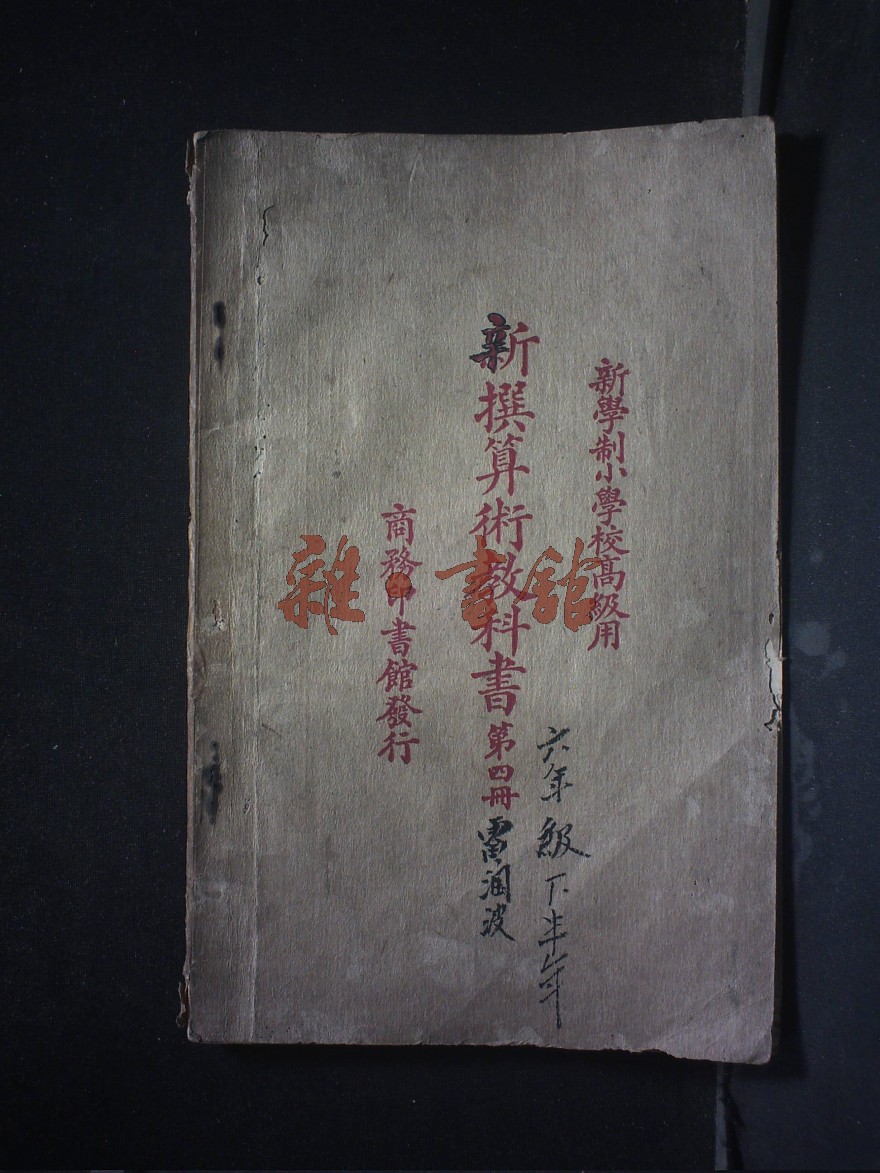 新學制小學校高級用
新撰算術教科書 第四冊
商務印書館發行
六年級下半年
雷潤波
雜·書館